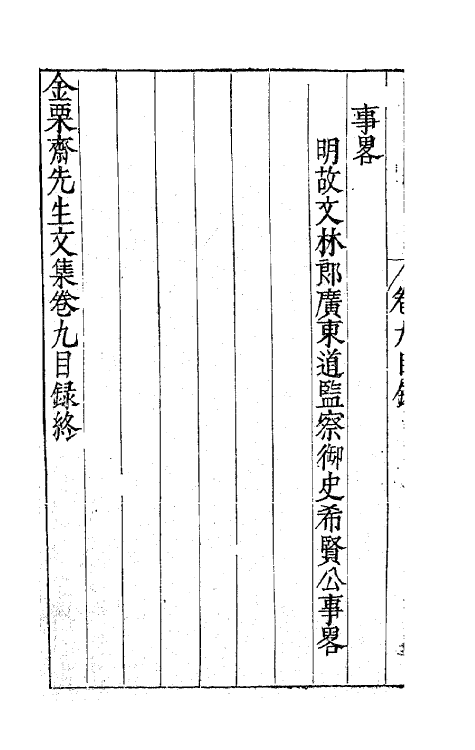 卷九目錄
事畧
明故文林郎廣東道監察御史希賢公事畧
金栗齋先生文集卷九目録終